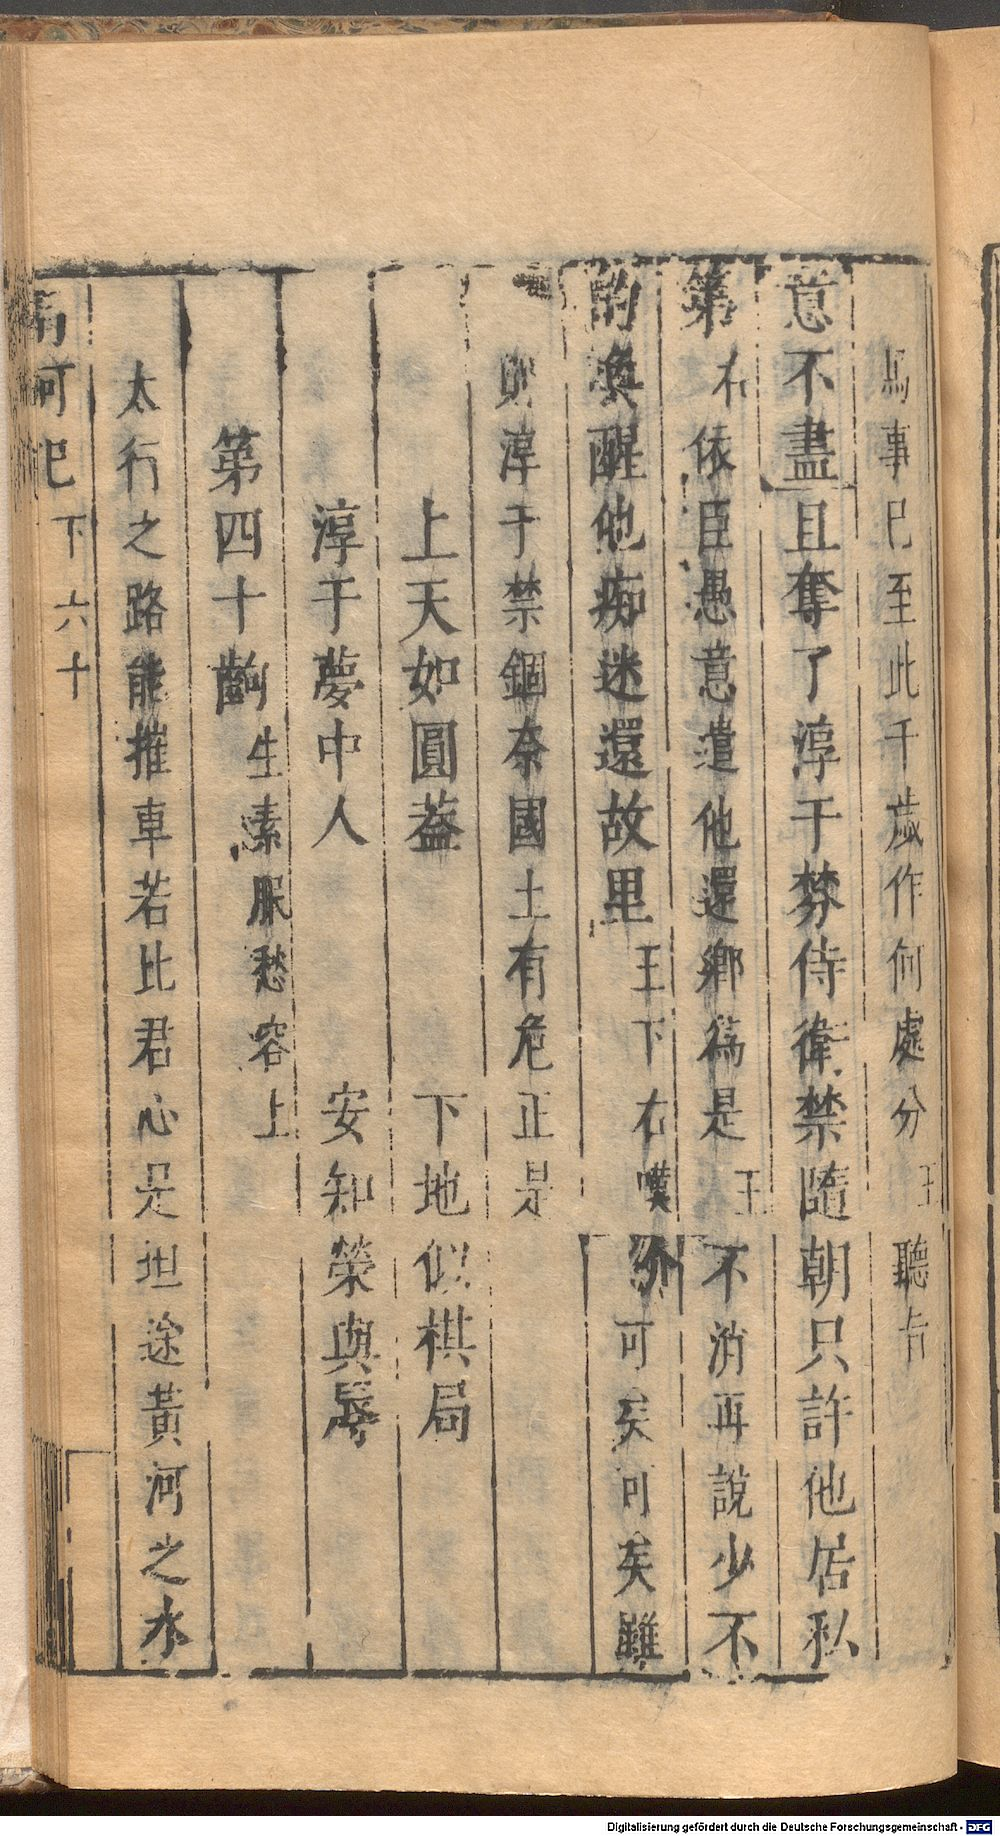 馬事已至此千歲作何處分王聽旨
意不盡且奪了淳于棼侍衛禁隨朝只許他居私
第右依臣愚意遣他還鄉爲是王不消再說少不
的喚醒他痴迷還故里王下右嘆介可矣可矣雖
則淳于禁錮奈國土有危正是
上天如圓蓋 下地似棋局
淳于夢中人 安知榮與辱
第四十齣生素服愁容上
太行之路能摧車若比君心是坦途黃河之水
南柯記下 六十
Digitalisierung gefördert durch die Deutsche Forschungsgemeinschaft - DFG